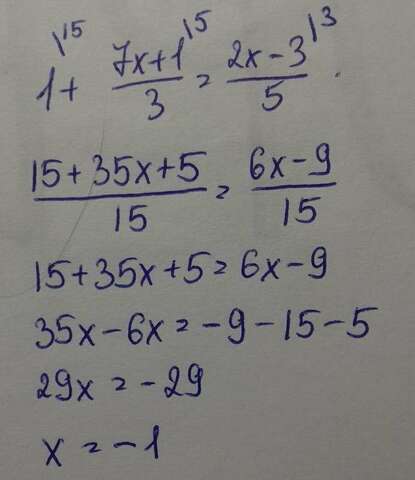 1\15 + 7x+1/3 \15 = 2x-3/5 \3 .
15+35x+5/15 = 6x-9/15
15+35x+5=6x-9
35x-6x=-9-15-5
29x=-29
x=-1